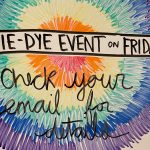 IE-DYE EVENT ON FRIDA
Check your
email for
details